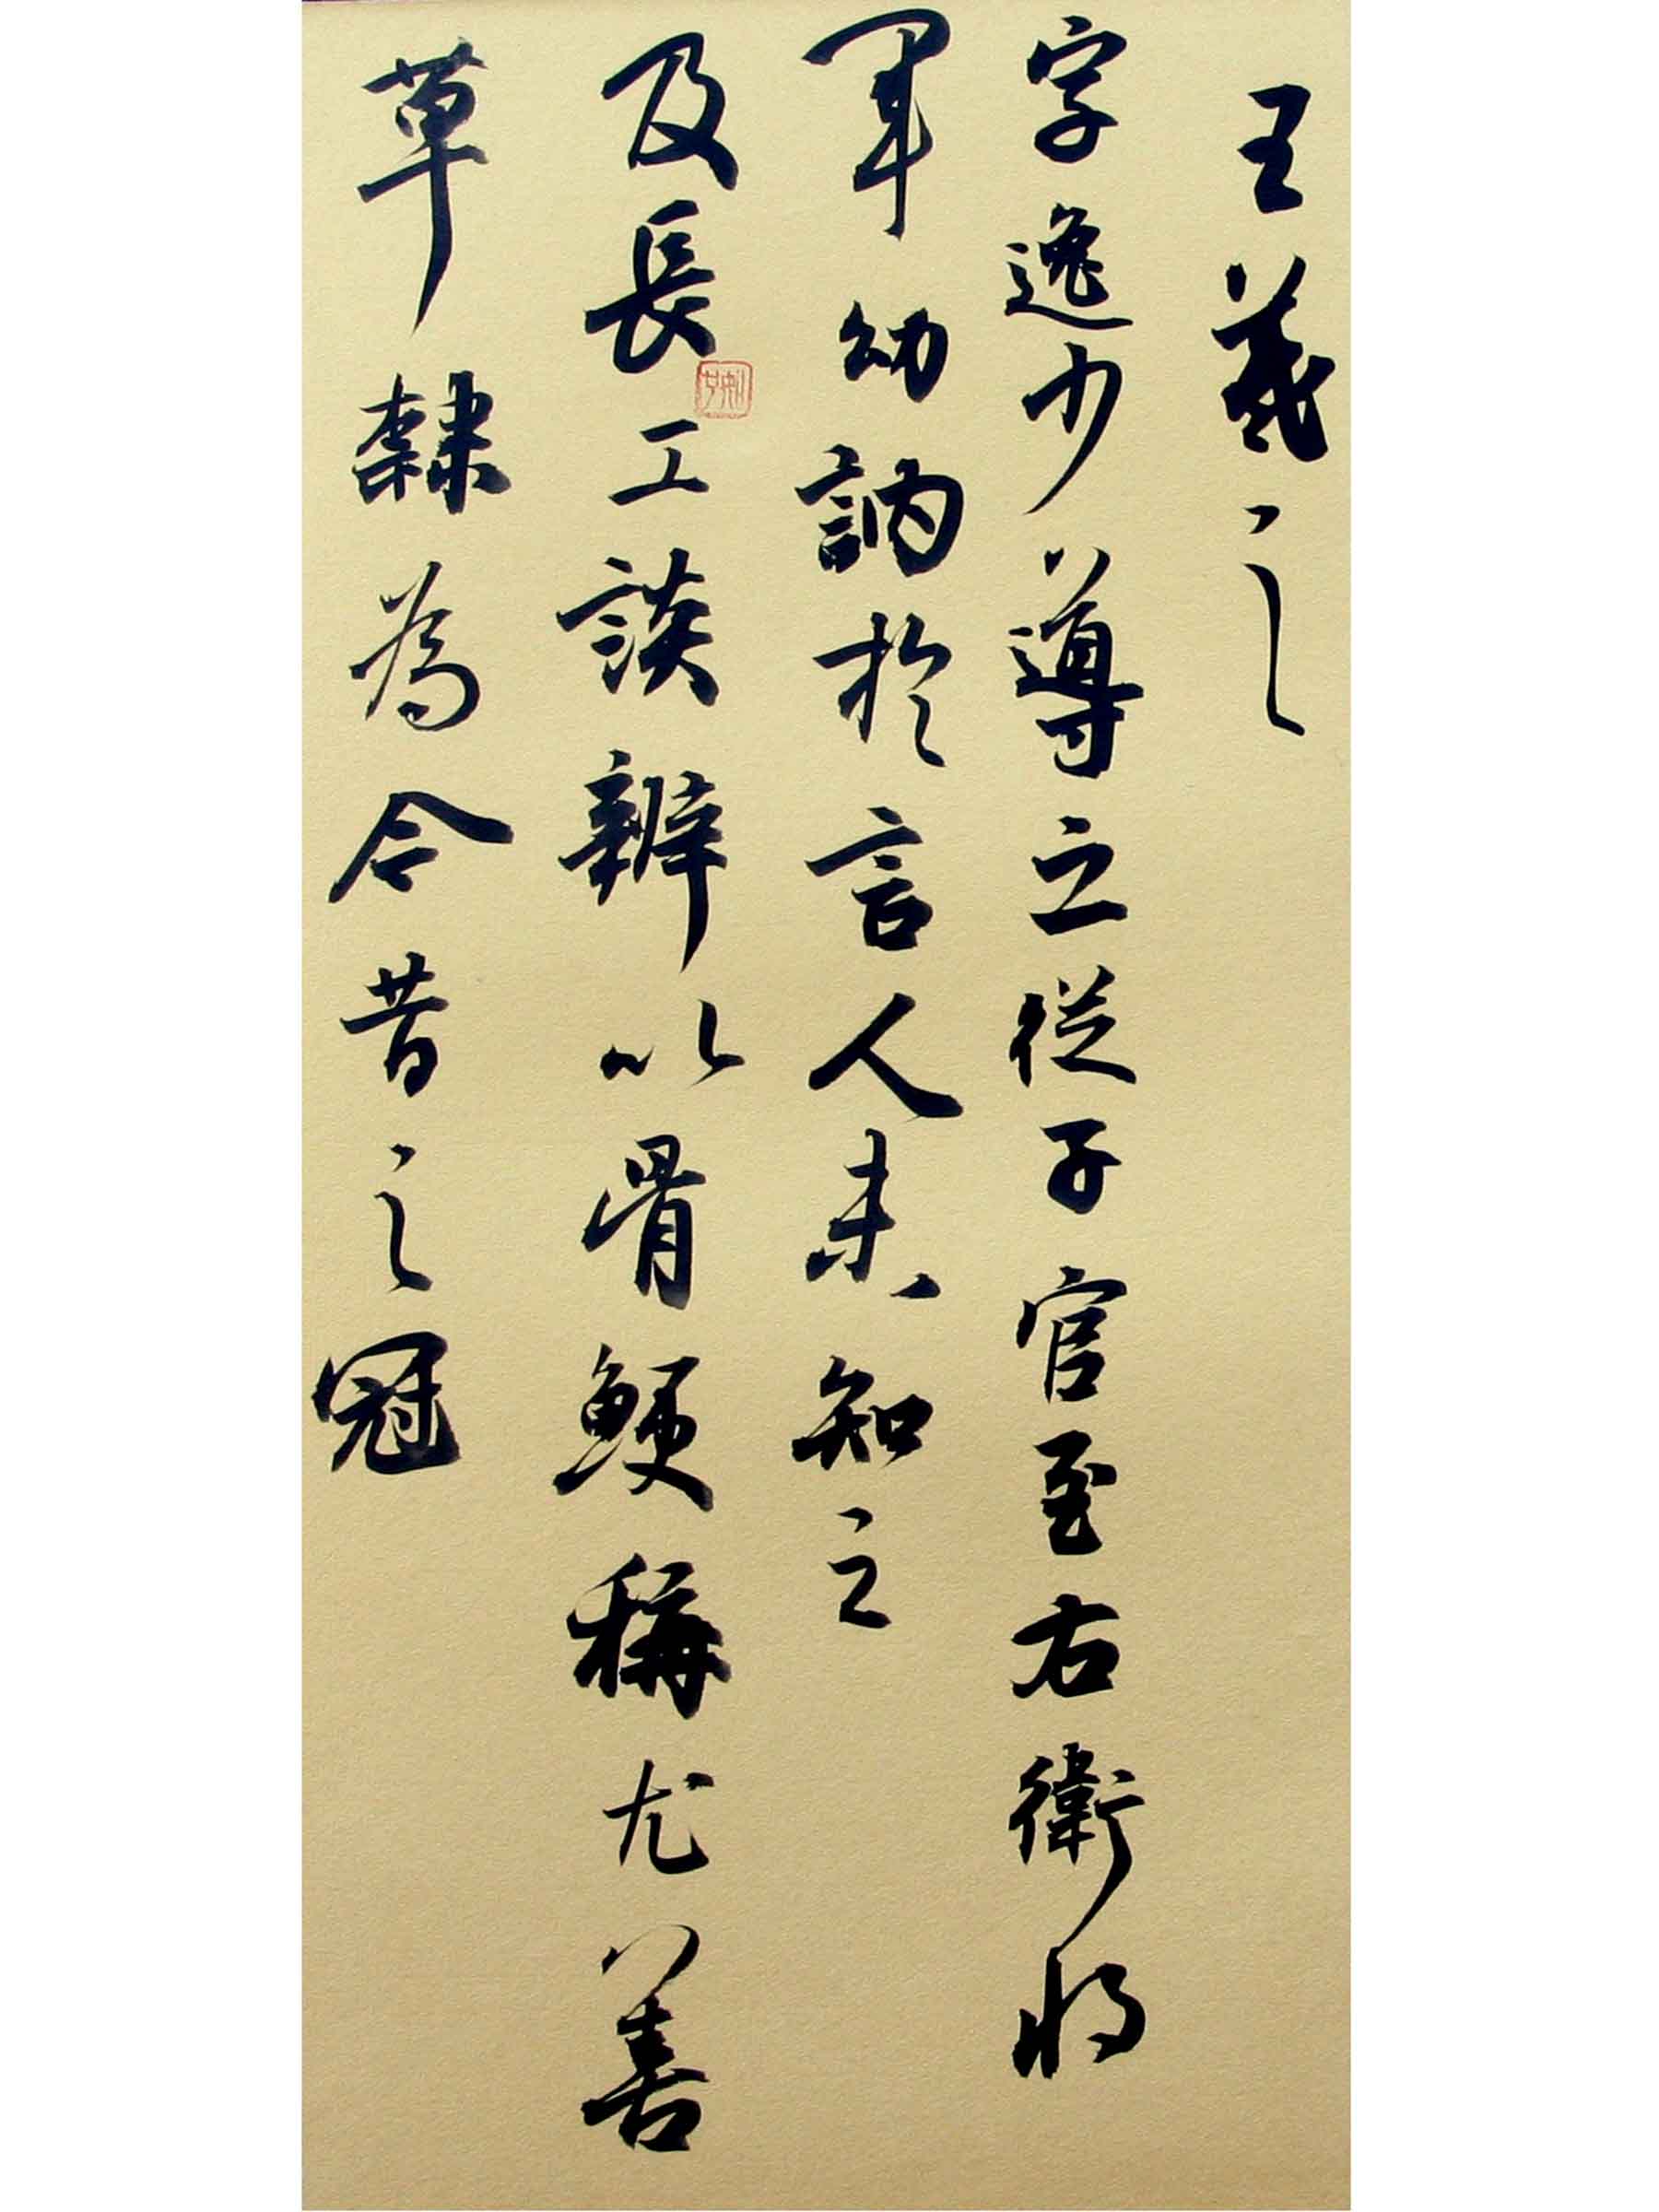 王羲之
字逸少導之從子官至右衛將
軍幼訥於言人未知之
及長工談辨以骨鯁稱尤善
草隸為今昔之冠